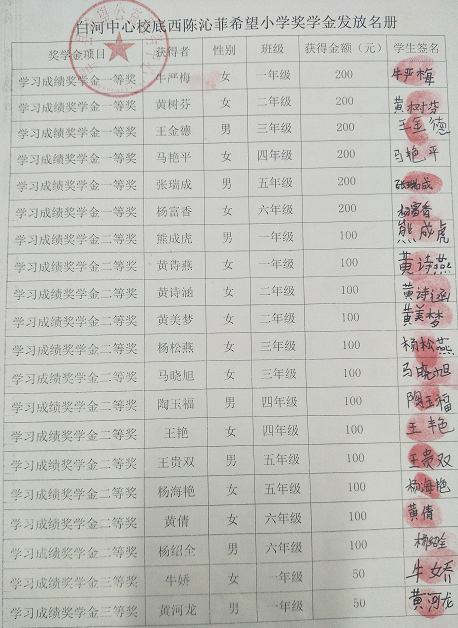 白河中心校底西陈沁菲希望小学奖学金发放名册
奖学金项目 获得者 性别 班级 获得金额（元） 学生签名
学习成绩奖学金一等奖 牛严梅 女 一年级 200 牛严梅
学习成绩奖学金一等奖 黄树芬 女 二年级 200 黄树芬
学习成绩奖学金一等奖 王金德 男 三年级 200 王金德
学习成绩奖学金一等奖 马艳平 女 四年级 200 马艳平
学习成绩奖学金一等奖 张瑞成 男 五年级 200 张瑞成
学习成绩奖学金一等奖 杨富香 女 六年级 200 杨富香
学习成绩奖学金二等奖 熊成虎 男 一年级 100 熊成虎
学习成绩奖学金二等奖 黄诗燕 女 一年级 100 黄诗燕
学习成绩奖学金二等奖 黄诗涵 女 二年级 100 黄诗涵
学习成绩奖学金二等奖 黄美梦 女 二年级 100 黄美梦
学习成绩奖学金二等奖 杨松燕 女 三年级 100 杨松燕
学习成绩奖学金二等奖 马晓旭 女 三年级 100 马晓旭
学习成绩奖学金二等奖 陶玉福 男 四年级 100 陶玉福
学习成绩奖学金二等奖 王艳 女 四年级 100 王艳
学习成绩奖学金二等奖 王贵双 男 五年级 100 王贵双
学习成绩奖学金二等奖 杨海艳 女 五年级 100 杨海艳
学习成绩奖学金二等奖 黄倩 女 六年级 100 黄倩
学习成绩奖学金二等奖 杨绍全 男 六年级 100 杨绍全
学习成绩奖学金三等奖 牛娇 女 一年级 50 牛娇
学习成绩奖学金三等奖 黄河龙 男 一年级 50 黄河龙